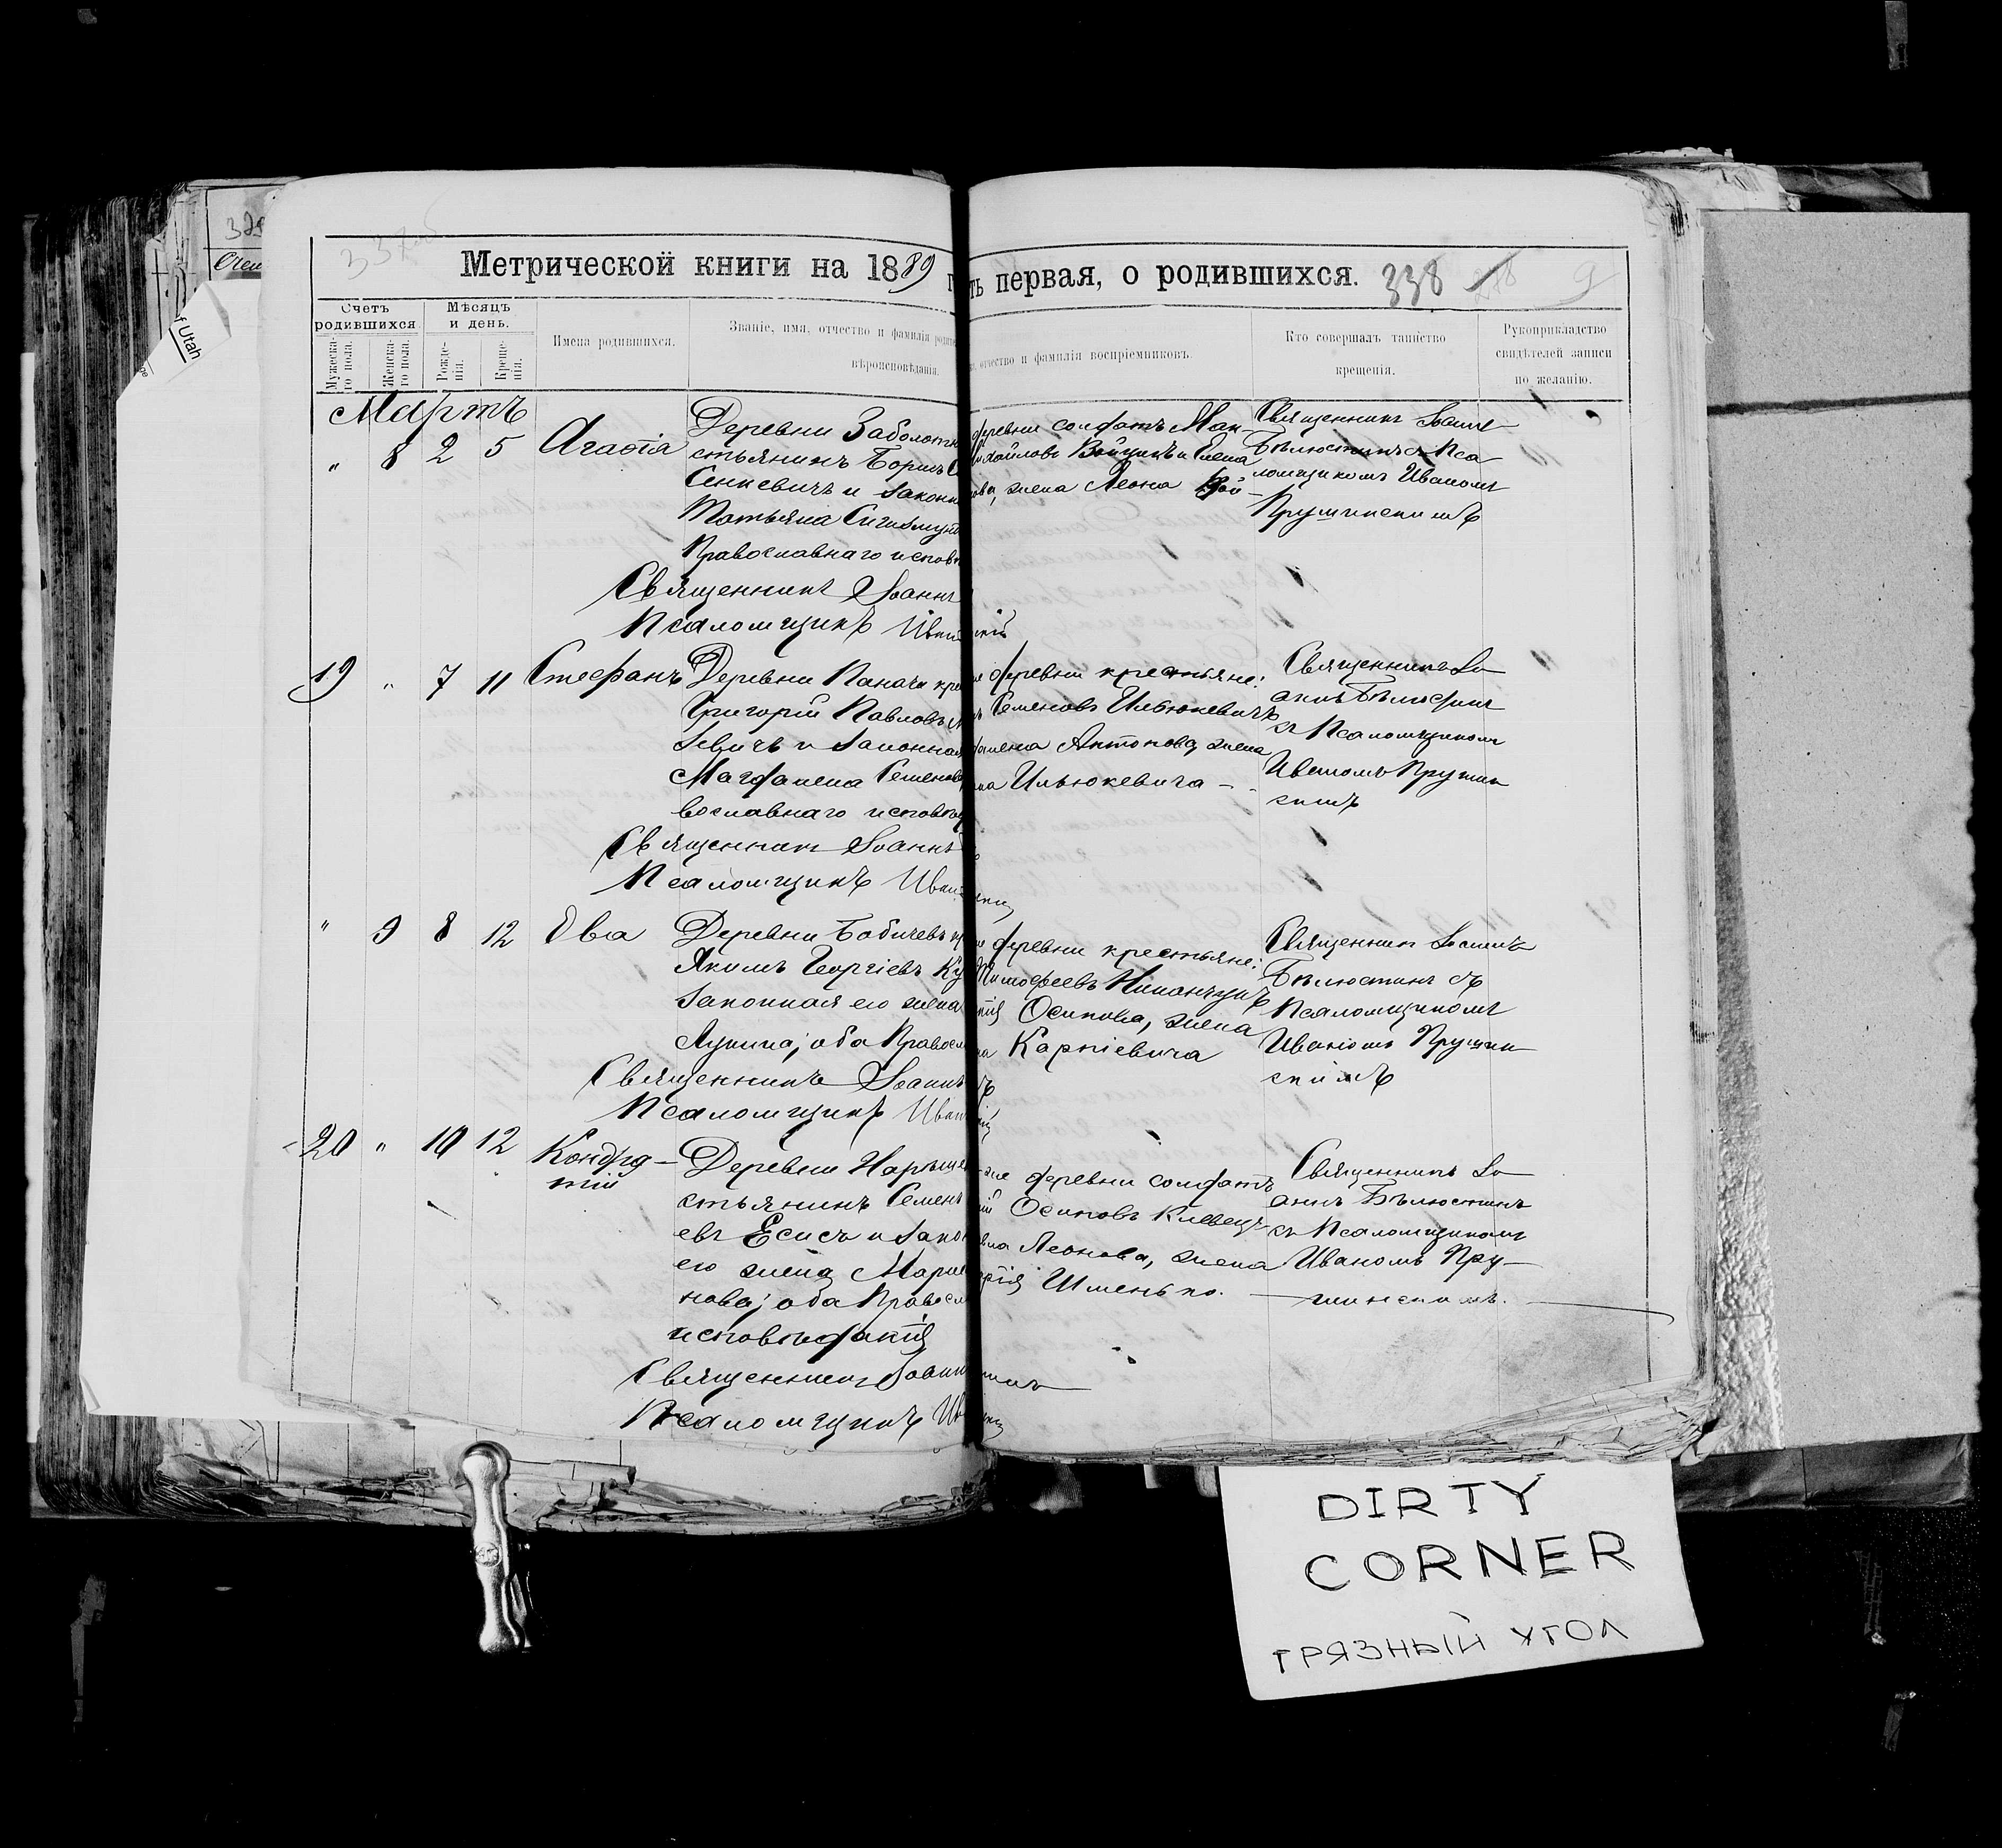 Метрической книги на 1889
ть первая, о родившихся. 338
Счетъ родившихся.
Мужеска-го пола.
Женска-го пола.
Мѣсяцъ и день.
Рожде-нія.
Креще-нія.
Имена родившихся.
Званіе, имя, отчество и фамилія
вѣроисповѣданія.
отчество и фамилія воспріемниковъ.
Кто совершалъ таинство
крещенія.
Рукоприкладство
свидѣтелей записи
по желанію.
Мартъ
" 8 2 5 Агафія
Деревни Заболоть
стьянинъ Борисъ
Сенкевичъ и закон
Татьяна Сигизмун
Православнаго испов
Священникъ Іоаннъ
Псаломщикъ Иван
деревни солдатъ Мак-
хайловъ Войцикъ и Елена
ова, жена Леона Вой-
скій
Священникъ Іоаннъ
Бѣлюстинъ съ Пса
ломщикомъ Иваномъ
Прушинскимъ
19 " 7 11 Стефанъ
Деревни Паначи кре
Григорій Павловъ
зевичъ и законная
Магдалена Семенов
вославнаго исповѣд
Священникъ Іоаннъ
Псаломщикъ Иван
деревни крестьяне:
Семеновъ Ильюкевичъ
Антонова жена
Ильюкевича
Священникъ Іо-
аннъ Бѣлюстинъ
съ Псаломщикомъ
Иваномъ Прушин
скимъ
" 9 8 12 Ева
Деревни Бобичевъ кр
Якимъ Георгіевъ Ку
законная его жена
Лукина; оба Правосл
Священникъ Іоаннъ
Псаломщикъ Иван
деревни крестьяне:
Тимофеевъ Никончукъ
Осипова, жена
Карпіевича
Священникъ Іоаннъ
Бѣлюстинъ съ
Псаломщикомъ
Иваномъ Прушин
скимъ
20 " 10 12 Кондра-
тій
Деревни Нарыше
стьянинъ Семенъ
евъ Есисъ и зако
его жена Мари
нова; оба Правосл
исповѣданія
Священникъ Іоанн
Псаломщикъ Ив
же деревни солдатъ
ій Осиповъ Клевец-
Леонова, жена
Шменько.
Священникъ Іо-
аннъ Бѣлюстинъ
съ Псаломщикомъ
Иваномъ Пру-
шинскимъ.
f Utah
DIRTY
CORNER
ГРЯЗНЫЙ УГОЛ